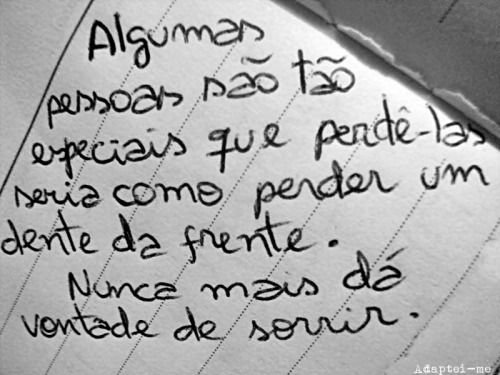 Algumas
pessoas são tão
especiais que perdê-las
seria como perder um
dente da frente.
Nunca mais dá
vontade de sorrir.
Adaptei-me